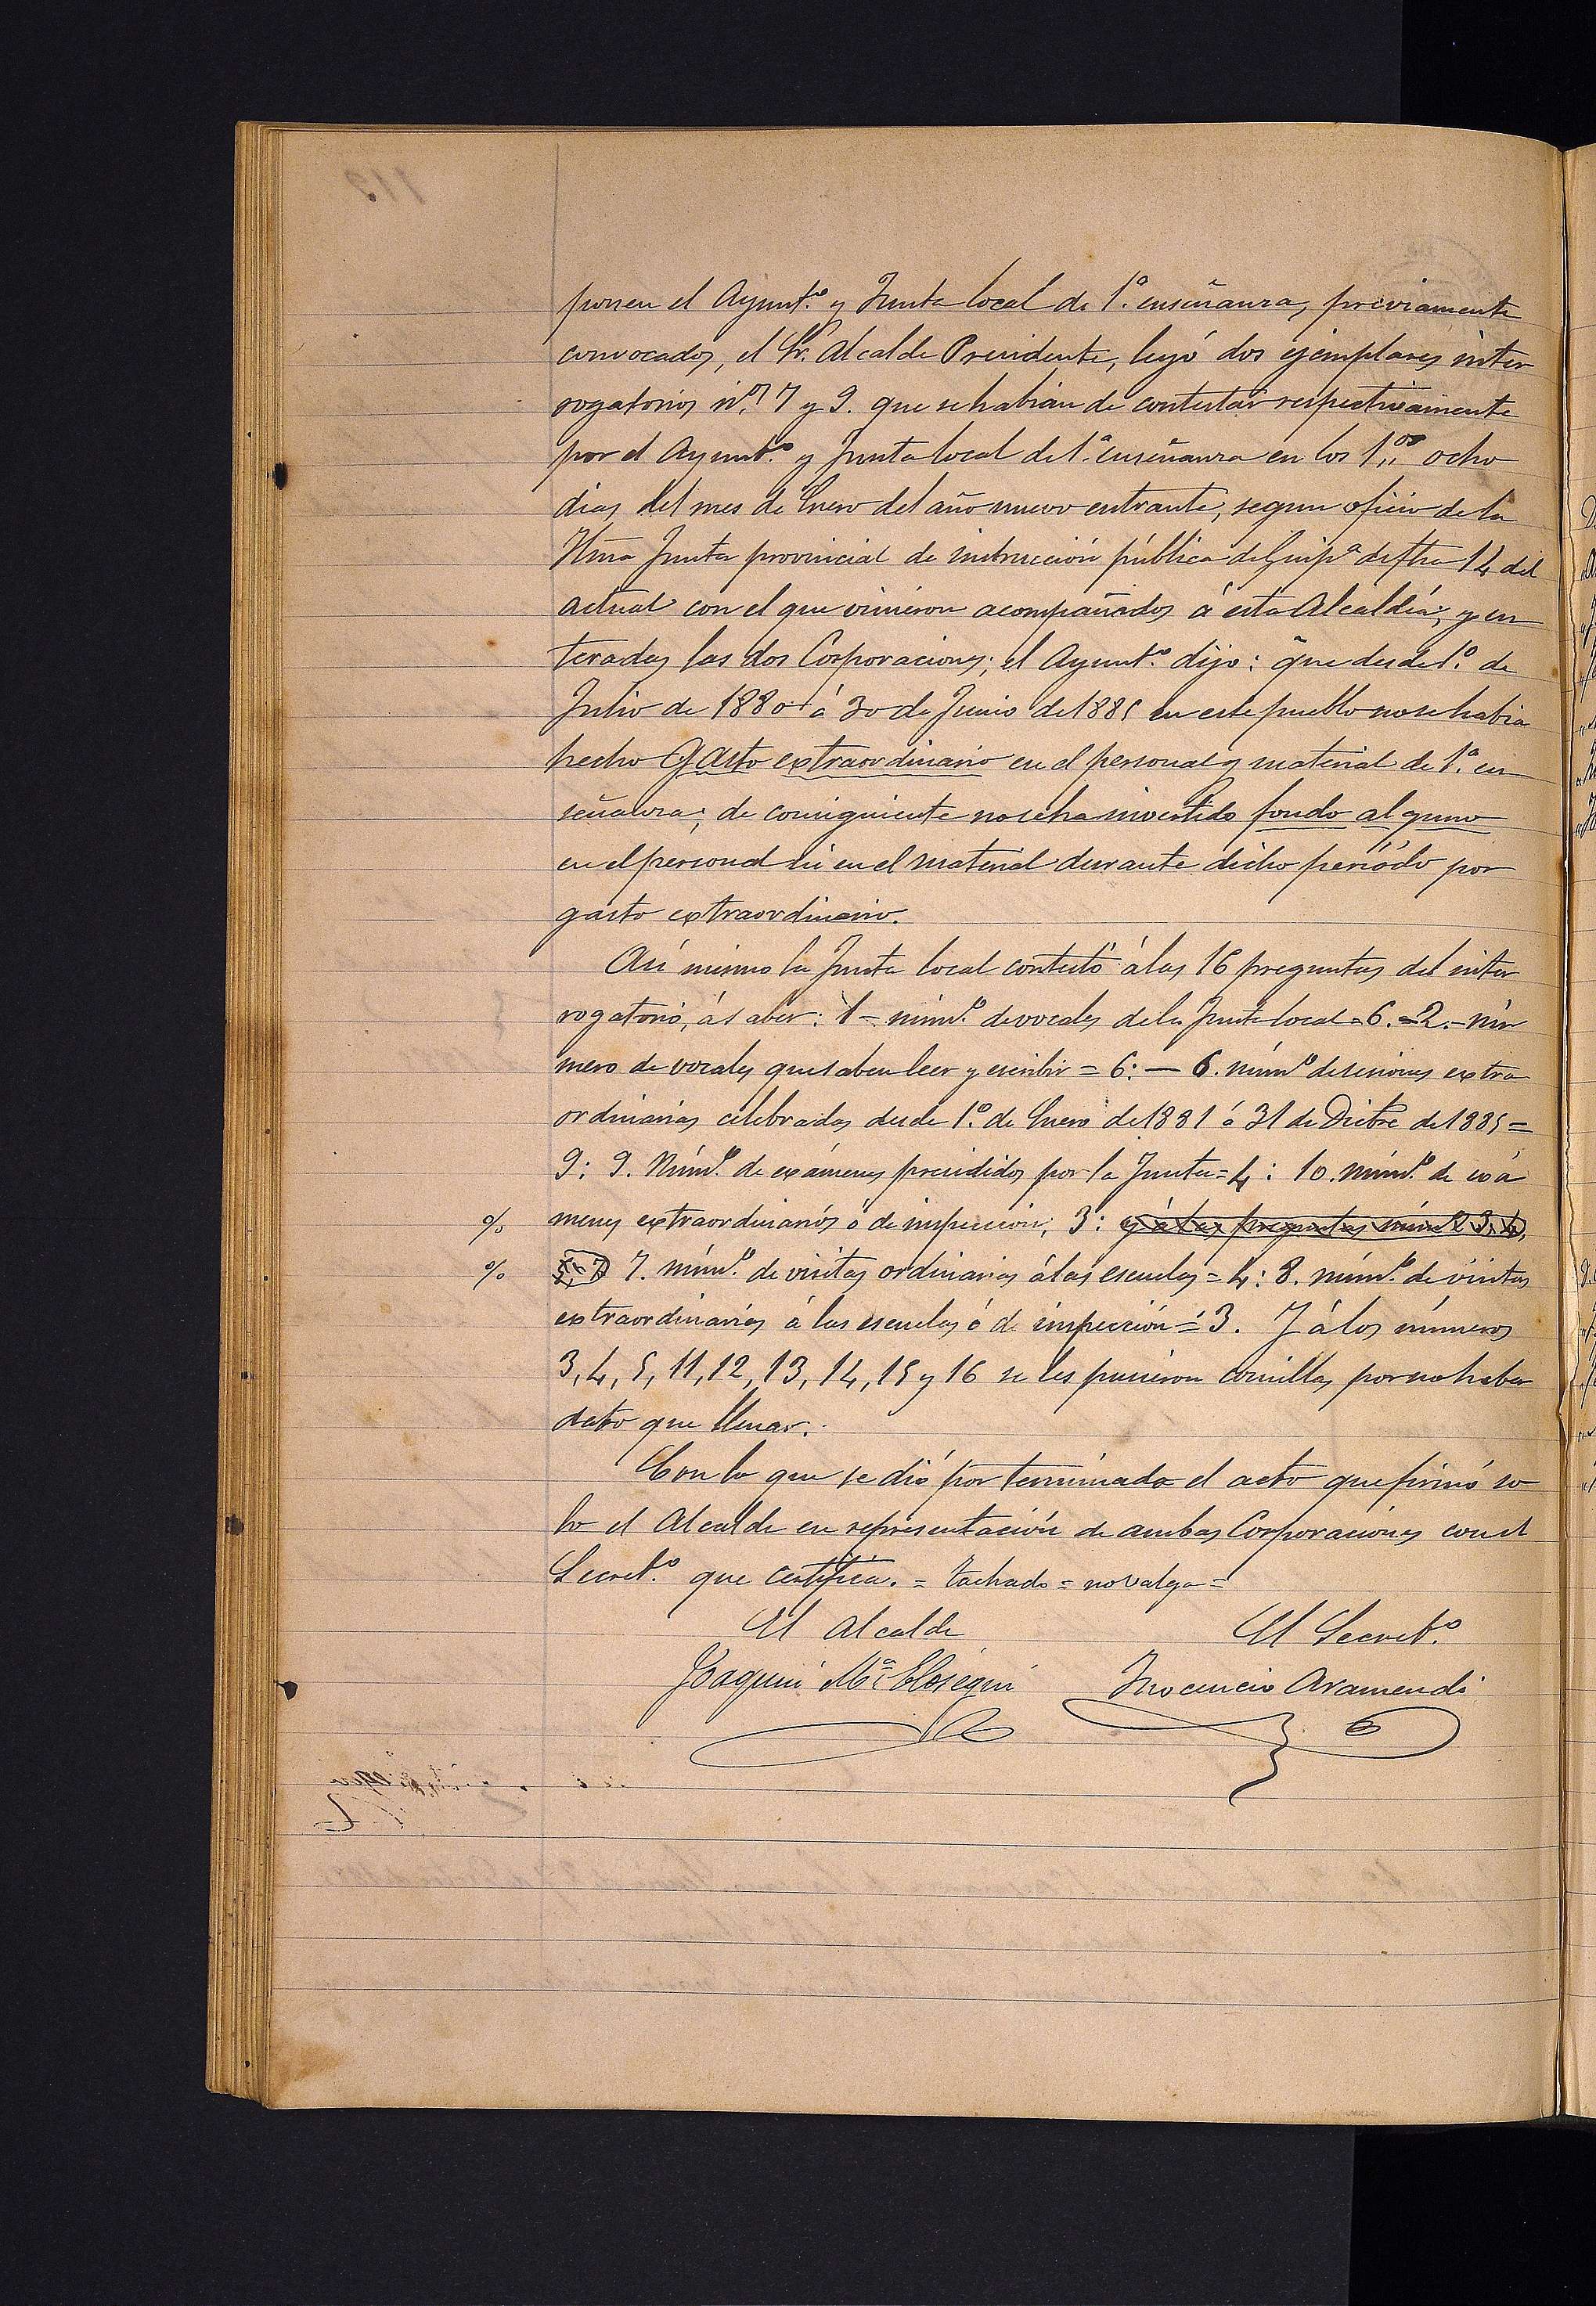 ponen el Ayunt.º y Junta local de 1.ª enseñanza, previamente
convocados, el Sr. Alcalde Presidente, leyó dos ejemplares inter
rogatorios n.ºs 7 y 9. que se habian de contestar respectivamente
por el Ayunt.º y Junta local de 1.ª enseñanza en los 1.ºs ocho
dias del mes de Enero del año nuevo entrante, segun oficio de la
Ilma Junta provincial de instrucción pública de Guipª de fha 14 del
actual con el que vinieron acompañados á esta Alcaldía; y en
teradas las dos Corporaciones; el Ayunt.º dijo: que desde 1.º de
Julio de 1880 á 30 de Junio de 1885 en este pueblo no se habia
hecho Gasto extraordinario en el personal y material de 1.ª en
señanza; de consiguiente no se ha invertido fondo alguno
en el personal ni en el material durante dicho periódo por
gasto extraordinario.
Así mismo la Junta local contestó á las 16 preguntas del inter
rogatorio, á saber: 1 = núm.º de vocales de la Junta local = 6. = 2. = nú
mero de vocales que saben leer y escribir = 6: — 6. núm.º de sesiones extra
ordinarias celebradas desde 1.º de Enero de 1881 á 31 de Dicbre de 1885 =
9: 9. Núm.º de exámenes presididos por la Junta = 4: 10. núm.º de exá
% menes extraordinarios ó de inspección; 3: y á las preguntas núm.º 2 3, 4,
% 5, 7. núm.º de visitas ordinarias á las escuelas = 4: 8. núm.º de visitas
extraordinarias á las escuelas ó de inspección = 3. Y á los números
3, 4, 5, 11, 12, 13, 14, 15 y 16 se les pusieron comillas por no haber
dato que llenar.
Con lo que se dió por terminado el acto que firmó so
lo el Alcalde en representación de ambas Corporaciones con el
Secret.º que certifica. = tachado = no valga =
El Alcalde El Secret.º
Joaquin Mª Elosegui Inocencio Aramendi